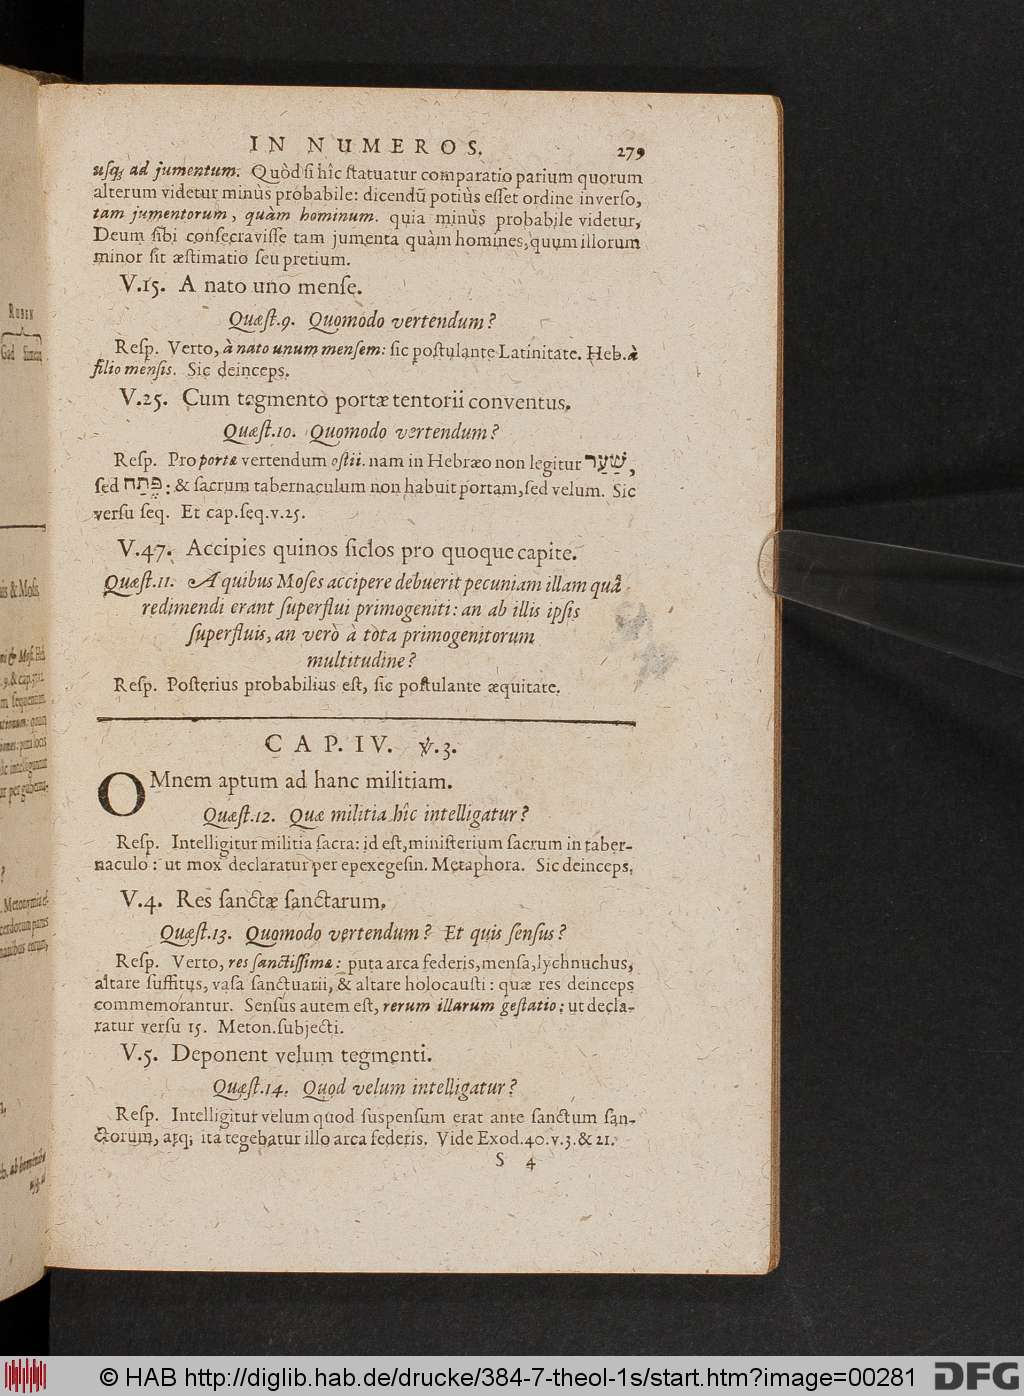 IN NUMEROS. 279
uſq; ad jumentum. Quòd ſi hîc ſtatuatur comparatio parium quorum
alterum videtur minùs probabile: dicendū potiùs eſſet ordine inverſo,
tam jumentorum, quàm hominum. quia minùs probabile videtur,
Deum ſibi conſecraviſſe tam jumenta quàm homines, quum illorum
minor ſit æſtimatio ſeu pretium.
V.15. A nato uno menſe.
Quæſt.9. Quomodo vertendum?
Reſp. Verto, à nato unum menſem: ſic poſtulante Latinitate. Heb. à
filio menſis. Sic deinceps.
V.25. Cum tegmento portæ tentorii conventus.
Quæſt.10. Quomodo vertendum?
Reſp. Pro portæ vertendum oſtii. nam in Hebræo non legitur שַׁעַר,
ſed פֶּתַח: & ſacrum tabernaculum non habuit portam, ſed velum. Sic
verſu ſeq. Et cap.ſeq.v.25.
V.47. Accipies quinos ſiclos pro quoque capite.
Quæſt.11. A quibus Moſes accipere debuerit pecuniam illam quâ
redimendi erant ſuperflui primogeniti: an ab illis ipſis
ſuperfluis, an verò à tota primogenitorum
multitudine?
Reſp. Poſterius probabilius eſt, ſic poſtulante æquitate.
CAP. IV. ℣.3.
OMnem aptum ad hanc militiam.
Quæſt.12. Quæ militia hîc intelligatur?
Reſp. Intelligitur militia ſacra: id eſt, miniſterium ſacrum in taber-
naculo: ut mox declaratur per epexegeſin. Metaphora. Sic deinceps.
V.4. Res ſanctæ ſanctarum.
Quæſt.13. Quomodo vertendum? Et quis ſenſus?
Reſp. Verto, res ſanctiſſimæ: puta arca federis, menſa, lychnuchus,
altare ſuffitus, vaſa ſanctuarii, & altare holocauſti: quæ res deinceps
commemorantur. Senſus autem eſt, rerum illarum geſtatio: ut decla-
ratur verſu 15. Meton. ſubjecti.
V.5. Deponent velum tegmenti.
Quæſt.14. Quod velum intelligatur?
Reſp. Intelligitur velum quod ſuspenſum erat ante ſanctum ſan-
ctorum, atq; ita tegebatur illo arca federis. Vide Exod.40.v.3.& 21.
S 4
© HAB http://diglib.hab.de/drucke/384-7-theol-1s/start.htm?image=00281
DFG